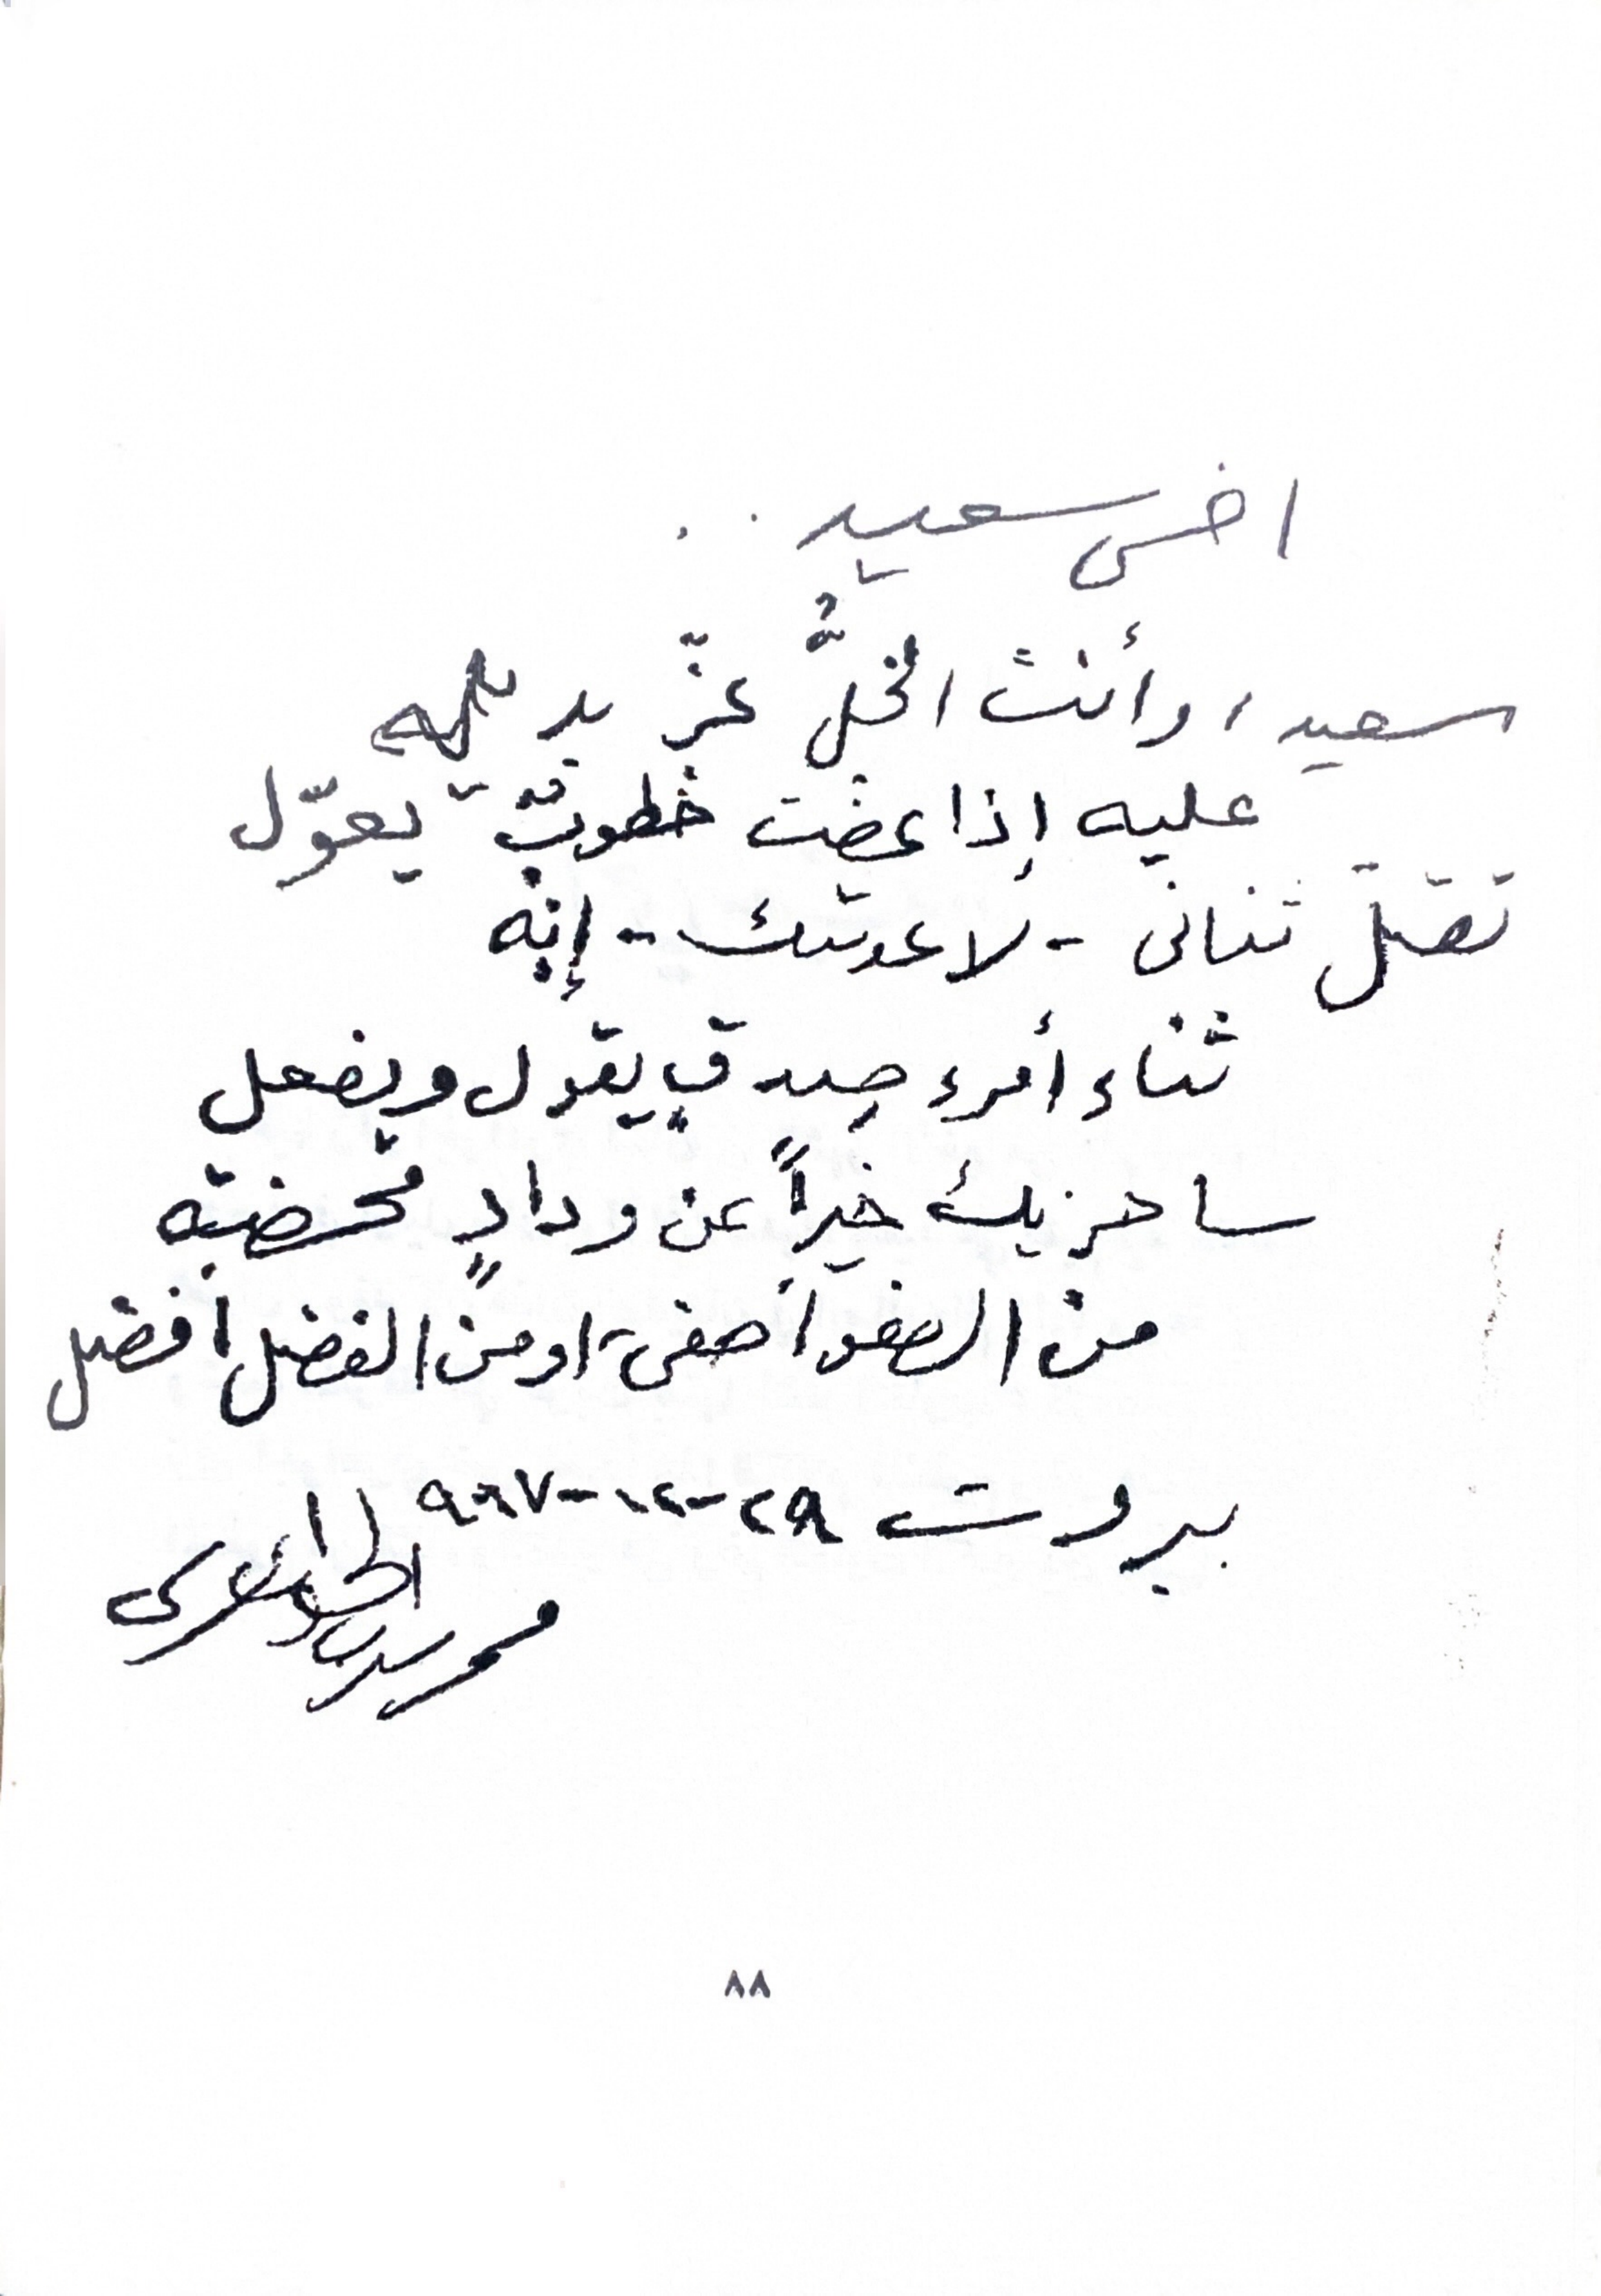 اخي سعيد ..
سعيد، وأنت الخلُّ عزّ بديله
عليه إذا عضت خطوبٌ يعوّل
تقبّل ثنائى - لا عدمتك - إنه
ثناء أمرءِ صدقٍ يقول ويفعل
ساجزيك خيراً عن ودادٍ محضته
من الصفو أصفى، او من الفضل أفضل
بيروت ٢٩-١٢-٩٦٧
محمد مهدي الجواهرى
٨٨